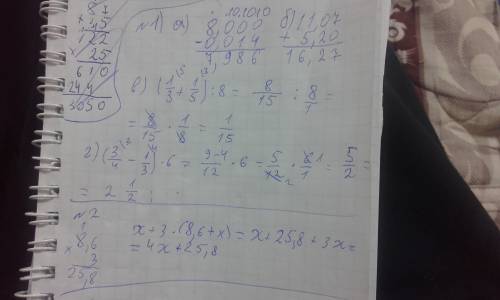 87
+ 35
122
× 25
610
244
3050
№1) а)
10.10.10
8,000
- 0,014
7,986
б) 11,07
+ 5,20
16,27
в) (1/3 + 1/5) : 8 = 8/15 : 8/1 =
= 8/15 · 1/8 = 1/15
г) (3/4 - 1/3) · 6 = 9-4/12 · 6 = 5/12 · 6/1 = 5/2 =
= 2 1/2;
№2
8,6
× 3
25,8
x + 3 · (8,6 + x) = x + 25,8 + 3x =
= 4x + 25,8